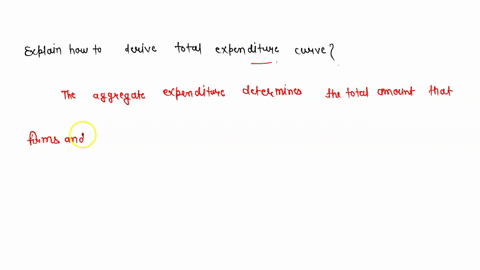 Explain how to derive total expenditure curve?
The aggregate expenditure determines the total amount that
firms and